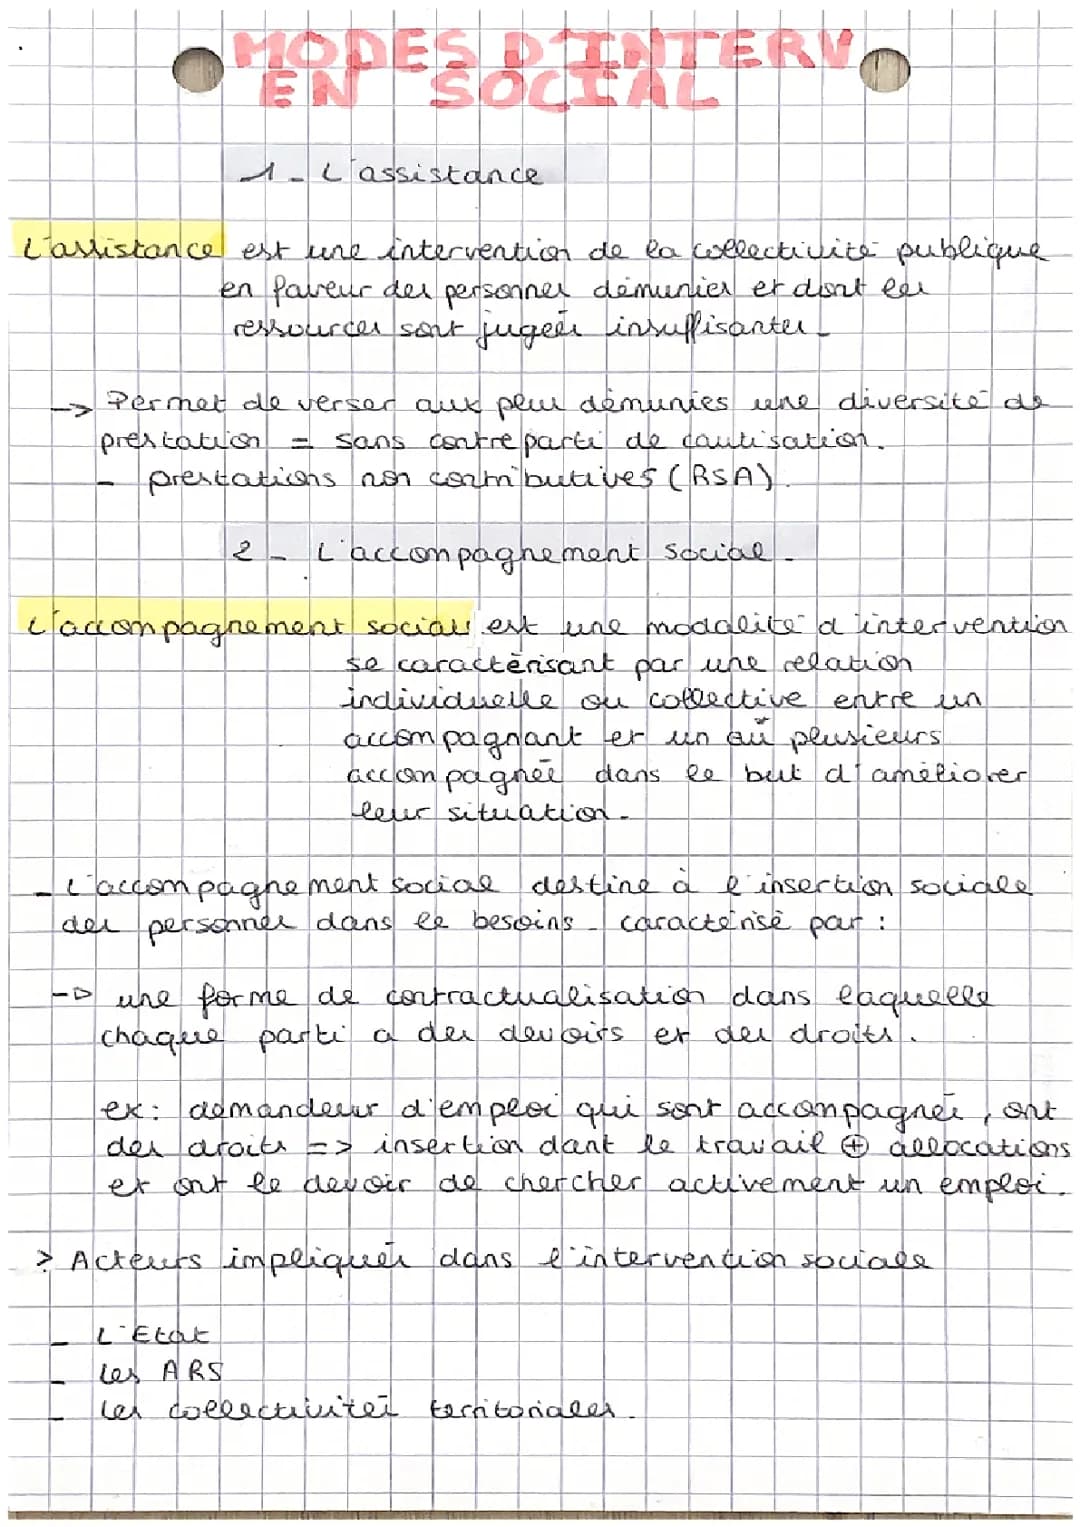 MODES D'INTERV
EN SOCIAL
1 - L'assistance
L'assistance est une intervention de la collectivité publique
en faveur des personnes démunies et dont les
ressources sont jugées insuffisantes -
-> Permet de verser aux peu démunies une diversité de
prestation = sans contre parti de cautisation.
- prestations non contributives (RSA).
2 - L'accompagnement social -
L'accompagnement social est une modalité d'intervention
se caractérisant par une relation
individuelle ou collective entre un
accompagnant et un ou plusieurs
accompagnée dans le but d'améliorer
leur situation -
- L'accompagnement social destine à l'insertion sociale
des personnes dans le besoins - caractérisé par :
-> une forme de contractualisation dans laquelle
chaque parti a des devoirs et des droits.
ex: demandeur d'emploi qui sont accompagnés, ont
des droits => insertion dant le travail ⊕ allocations
et ont le devoir de chercher activement un emploi.
> Acteurs impliqués dans l'intervention sociale
- L'Etat
- Les ARS
- Les collectivités territoriales.